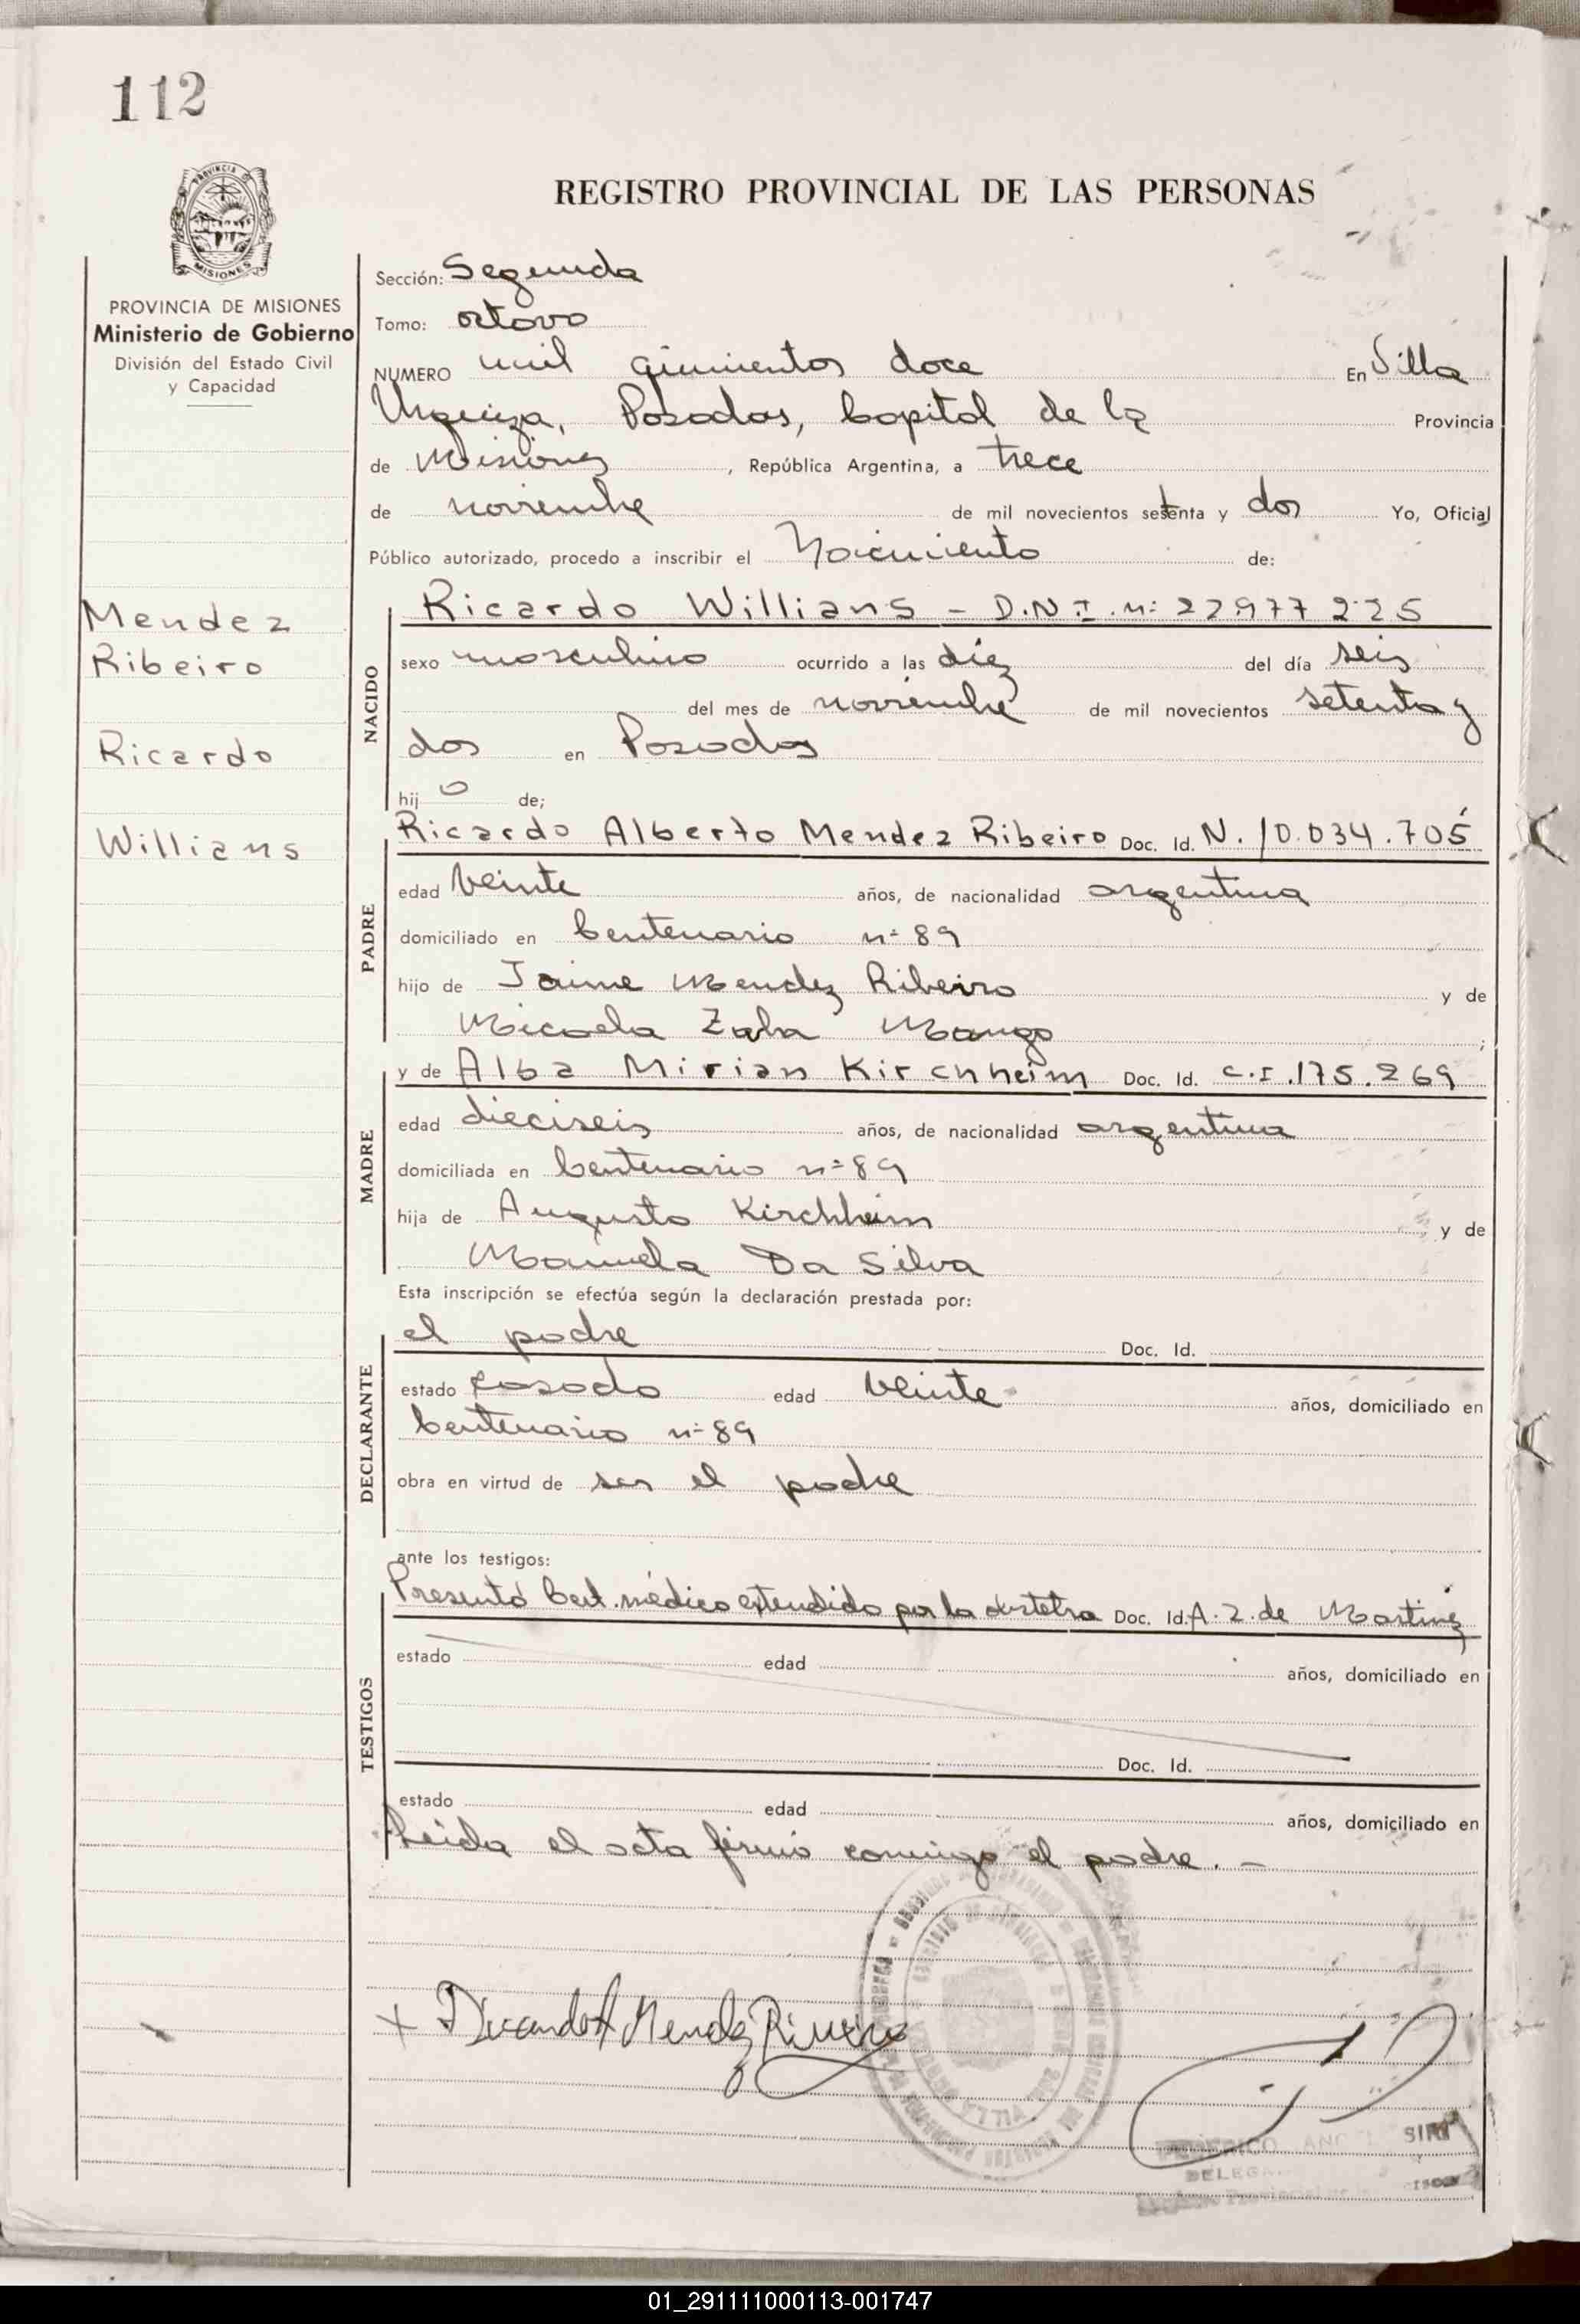 112
PROVINCIA
MISIONES
REGISTRO PROVINCIAL DE LAS PERSONAS
PROVINCIA DE MISIONES
Ministerio de Gobierno
División del Estado Civil
y Capacidad
Mendez
Ribeiro
Ricardo
Willians
Sección: Segunda
Tomo: octavo
NUMERO mil quinientos doce En Villa
Urquiza, Posadas, Capital de la Provincia
de Misiones, República Argentina, a trece
de noviembre de mil novecientos setenta y dos Yo, Oficial
Público autorizado, procedo a inscribir el Nacimiento de:
NACIDO
Ricardo Willians - D.N.I. Nº 22977225
sexo masculino ocurrido a las diez del día seis
del mes de noviembre de mil novecientos setenta y
dos en Posadas
hij o de;
PADRE
Ricardo Alberto Mendez Ribeiro Doc. Id. N. 10.034.705
edad veinte años, de nacionalidad argentina
domiciliado en Centenario nº 89
hijo de Jaime Mendez Ribeiro y de
Micaela Zaha Mango ;
MADRE
y de Alba Mirian Kirchheim Doc. Id. C.I. 175.269
edad dieciseis años, de nacionalidad argentina
domiciliada en Centenario nº 89
hija de Augusto Kirchheim y de
Manuela Da Silva
Esta inscripción se efectúa según la declaración prestada por:
DECLARANTE
el padre Doc. Id.
estado casado edad veinte años, domiciliado en
Centenario nº 89
obra en virtud de ser el padre
ante los testigos:
TESTIGOS
Presentó Cert. médico extendido por la obstetra Doc. Id. A. Z. de Martinez
estado edad años, domiciliado en
Doc. Id.
estado edad años, domiciliado en
Leida el acta firmó conmigo el padre. -
x Ricardo A Mendez Rivero
01_291111000113-001747